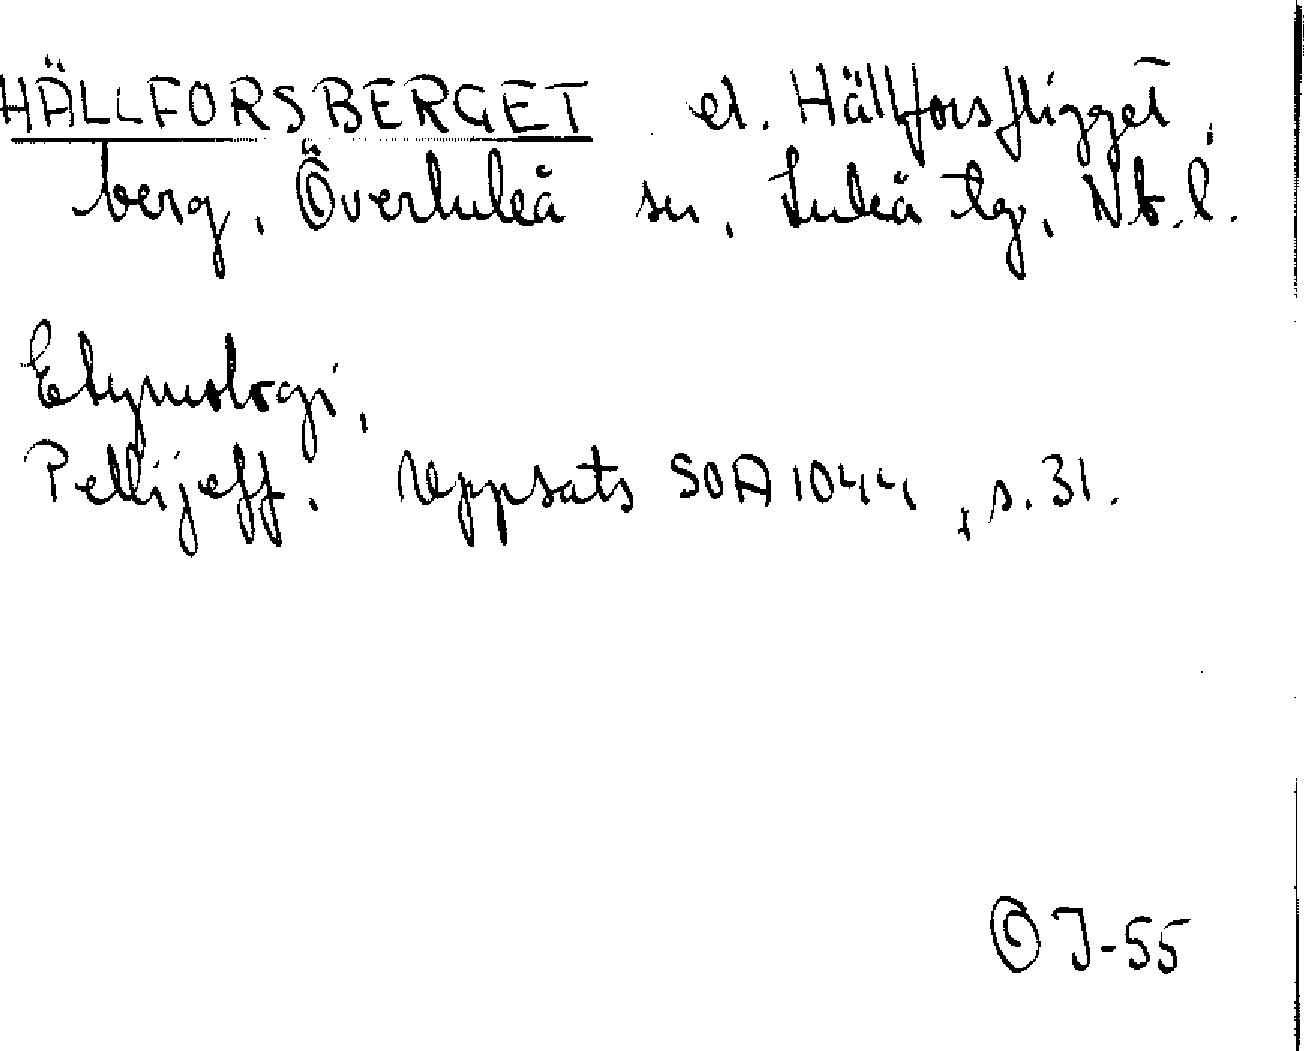 HÄLLFORSBERGET el. Hällforsfligget,
berg, Överluleå sn, Luleå tg, Nb.l.
Etymologi,
Pellijeff. Uppsats SOA 1044, s. 31.
J-55